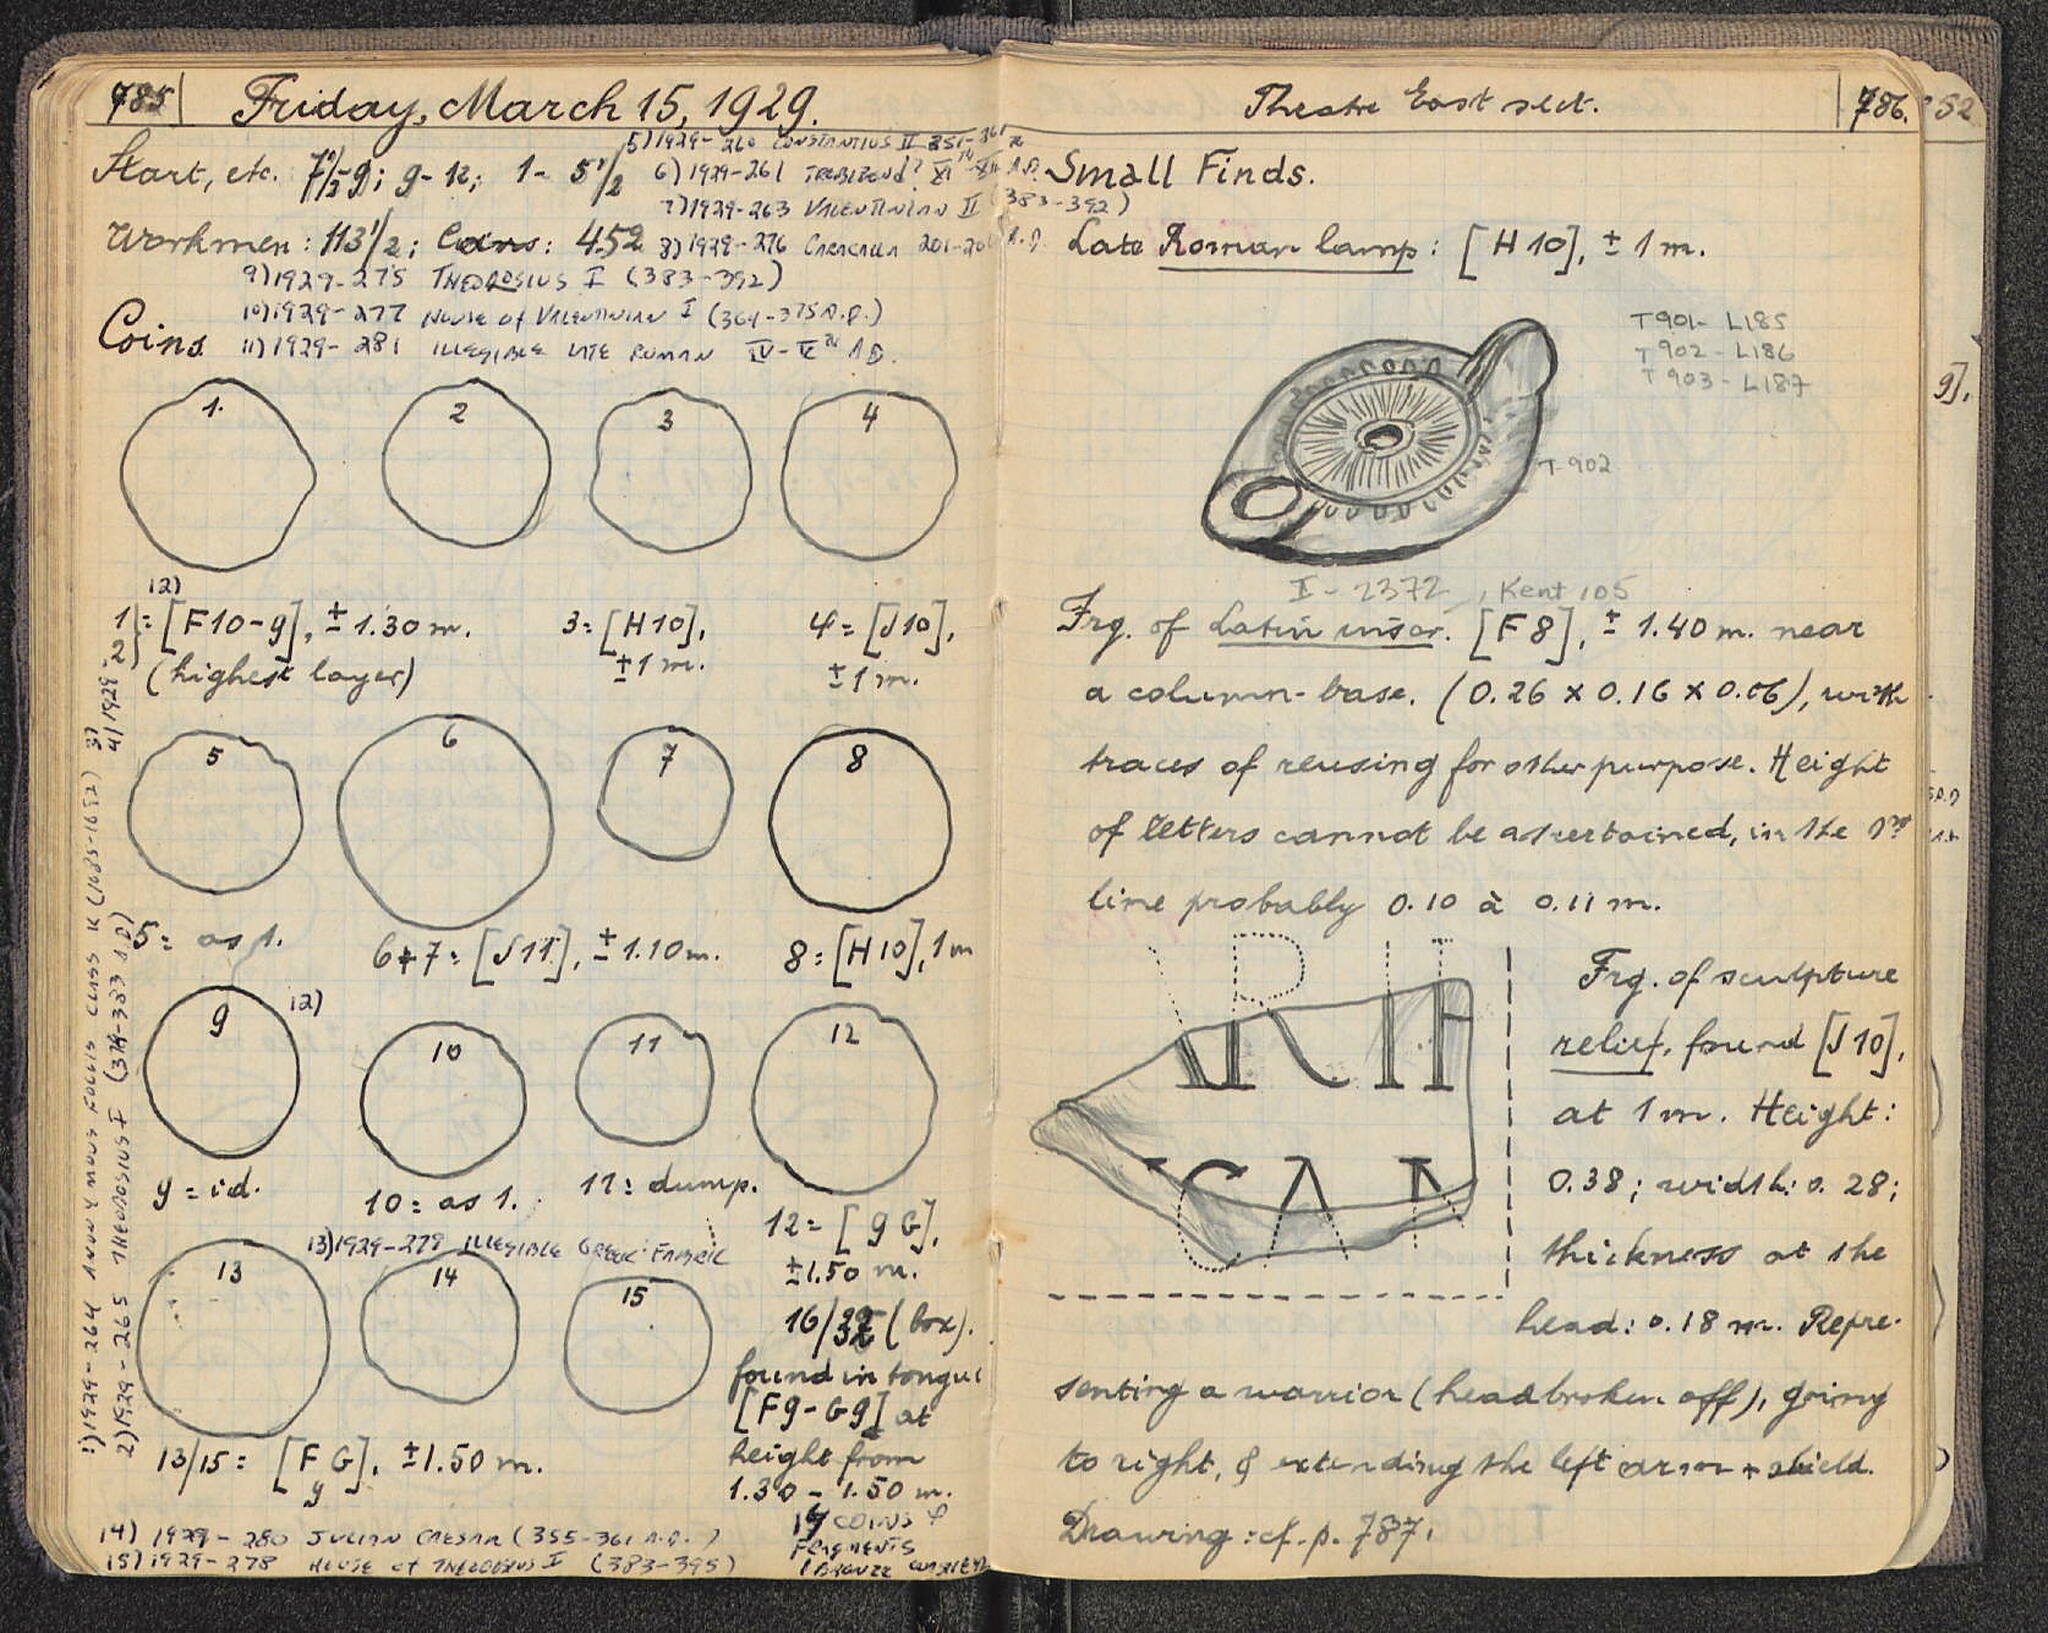 785 Friday, March 15, 1929.
Start, etc. 7½-9; 9-12; 1- 5½
5) 1929-260 CONSTANTIUS II 351-361
6) 1929-261 TREBIZOND? XI TH - XII A.D.
7) 1929-263 VALENTINIAN II (383-392)
Workmen: 113½; Coins: 452
8) 1929-276 CARACALLA A.D.
9) 1929-275 THEODOSIUS I (383-392)
10) 1929-277 HOUSE OF VALENTINIAN I (364-375 A.D.)
Coins
11) 1929-281 ILLEGIBLE LATE ROMAN IV-V TH AD.
1.
2
3
4
12)
1
2 = [F10-9], ± 1.30 m.
(highest layer)
3 = [H10],
± 1 m.
4 = [J10],
± 1 m.
5
6
7
8
5 = as 1.
6+7 = [J11], ± 1.10 m.
8 = [H10], 1 m
9
12)
10
11
12
9 = id.
10 = as 1.
11 = dump.
12 = [9 G],
± 1.50 m.
13) 1929-279 ILLEGIBLE GREEK FABRIC
13
14
15
16/32 (box).
found in tongue
[F9-G9] at
height from
1.30 - 1.50 m.
13/15 = [F G], ± 1.50 m.
9
COINS
FRAGMENTS
1 BRONZE
14) 1929-280 JULIAN CAESAR (355-361 A.D.)
15) 1929-278 HOUSE OF THEODOSIUS I (383-395)
1) 1929-264 ANONYMOUS FOLLIS CLASS K (1085-1092) 3)
2) 1929-265 THEODOSIUS I (379-383 AD) 4) 1929-
Theatre East sect. 786.
Small Finds.
Late Roman lamp: [H 10], ± 1 m.
T901- L185
T902- L186
T903- L187
T-902
I - 2372, Kent 105
Frg. of Latin inscr. [F 8], ± 1.40 m. near
a column-base. (0.26 x 0.16 x 0.06), with
traces of reusing for other purpose. Height
of letters cannot be ascertained, in the 1st
line probably 0.10 à 0.11 m.
RII
CAN
Frg. of sculpture
relief, found [J 10],
at 1 m. Height:
0.38; width: 0.28;
thickness at the
head: 0.18 m. Repre-
senting a warrior (head broken off), going
to right, & extending the left arm + shield.
Drawing: cf. p. 787.
52
9],